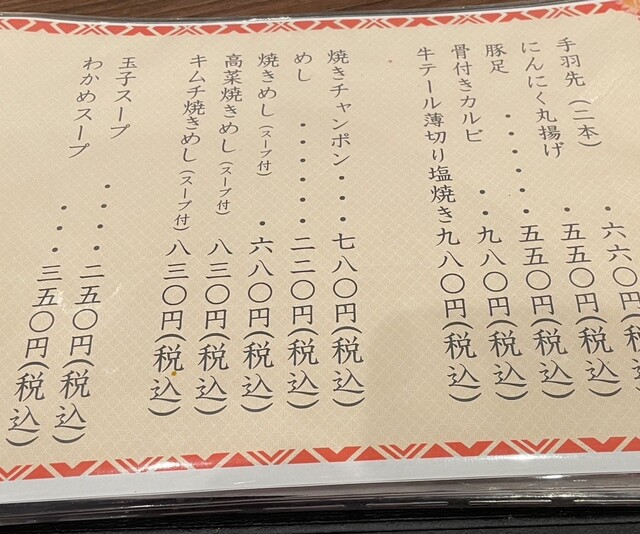 手羽先(二本)・六六〇円(税
にんにく丸揚げ・五五〇円(税込)
豚足・・・・・五五〇円(税込)
骨付きカルビ・・九八〇円(税込)
牛テール薄切り塩焼き九八〇円(税込)
焼きチャンポン・・・七八〇円(税込)
めし・・・・・二二〇円(税込)
焼きめし(スープ付)・六八〇円(税込)
高菜焼きめし(スープ付)八三〇円(税込)
キムチ焼きめし(スープ付)八三〇円(税込)
玉子スープ・・・二五〇円(税込)
わかめスープ・・・三五〇円(税込)